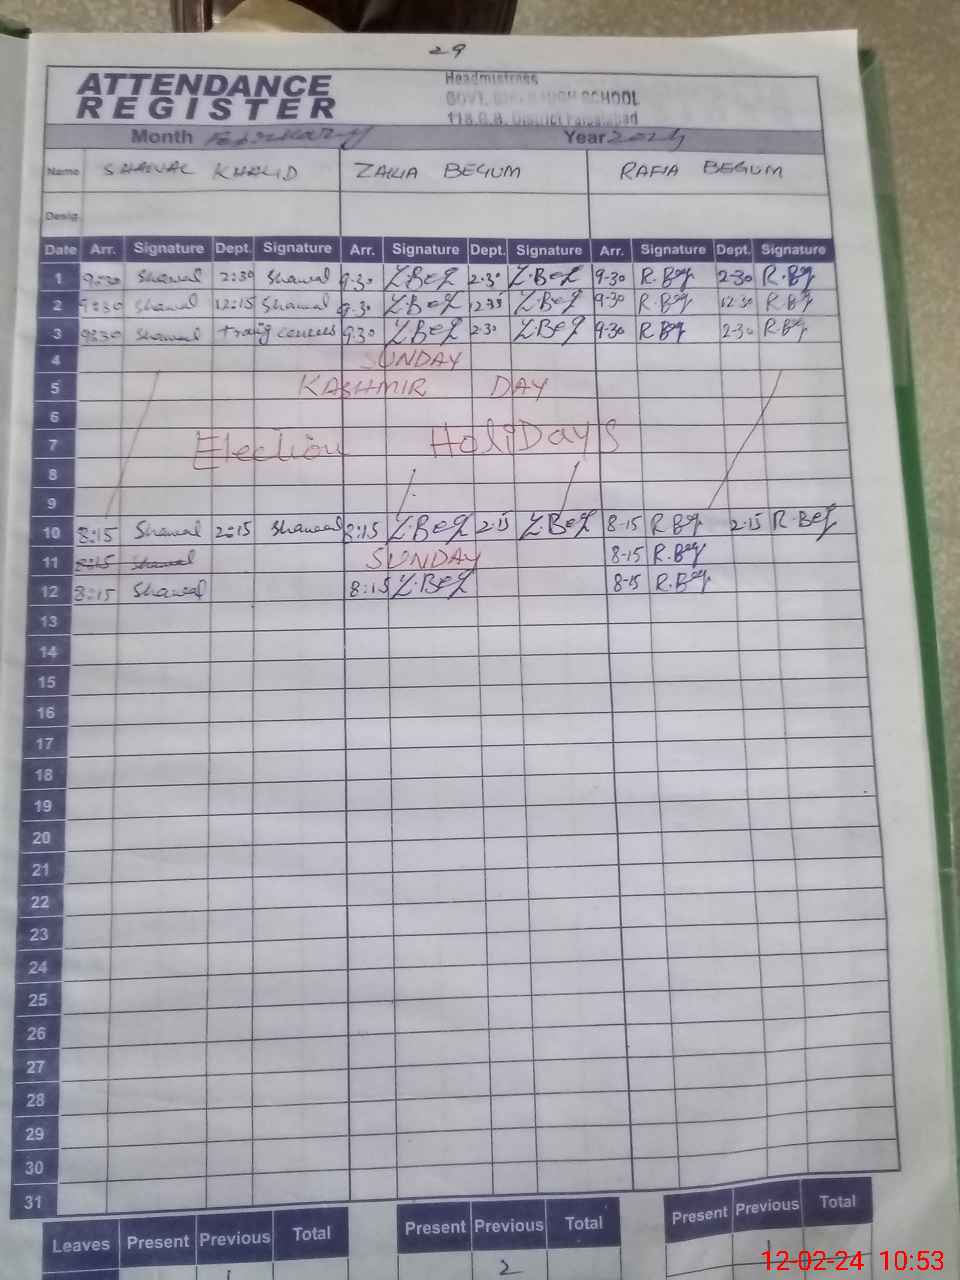 29
ATTENDANCE
REGISTER
Headmistress
GOVT. HIGH SCHOOL
118.G.B. District Faisalabad
Month February Year 2024
Name SHAWAL KHALID ZAKIA BEGUM RAFIA BEGUM
Desig.
Date Arr. Signature Dept. Signature Arr. Signature Dept. Signature Arr. Signature Dept. Signature
1 9:30 Shawal 2:30 Shawal 9.30 Z.Beg 2.30 Z.Beg 9-30 R.Beg 2-30 R.Beg
2 9:30 Shawal 12:15 Shawal 9.30 Z.Beg Z.Beg 9-30 R.Beg 12-30 R.Beg
3 9:30 Shawal 9.30 Z.Beg 2.30 Z.Beg 9-30 R.Beg 2-30 R.Beg
4 SUNDAY
5 KASHMIR DAY
6
7 Election HoliDays
8
9
10 8:15 Shawal 2:15 Shawal 8:15 Z.Beg 2.15 Z.Beg 8-15 R.Beg 2-15 R.Beg
11 8:15 Shawal SUNDAY 8-15 R.Beg
12 8:15 Shawal 8:15 Z.Beg 8-15 R.Beg
13
14
15
16
17
18
19
20
21
22
23
24
25
26
27
28
29
30
31
Leaves Present Previous Total Present Previous Total Present Previous Total
1 2 1
12-02-24 10:53